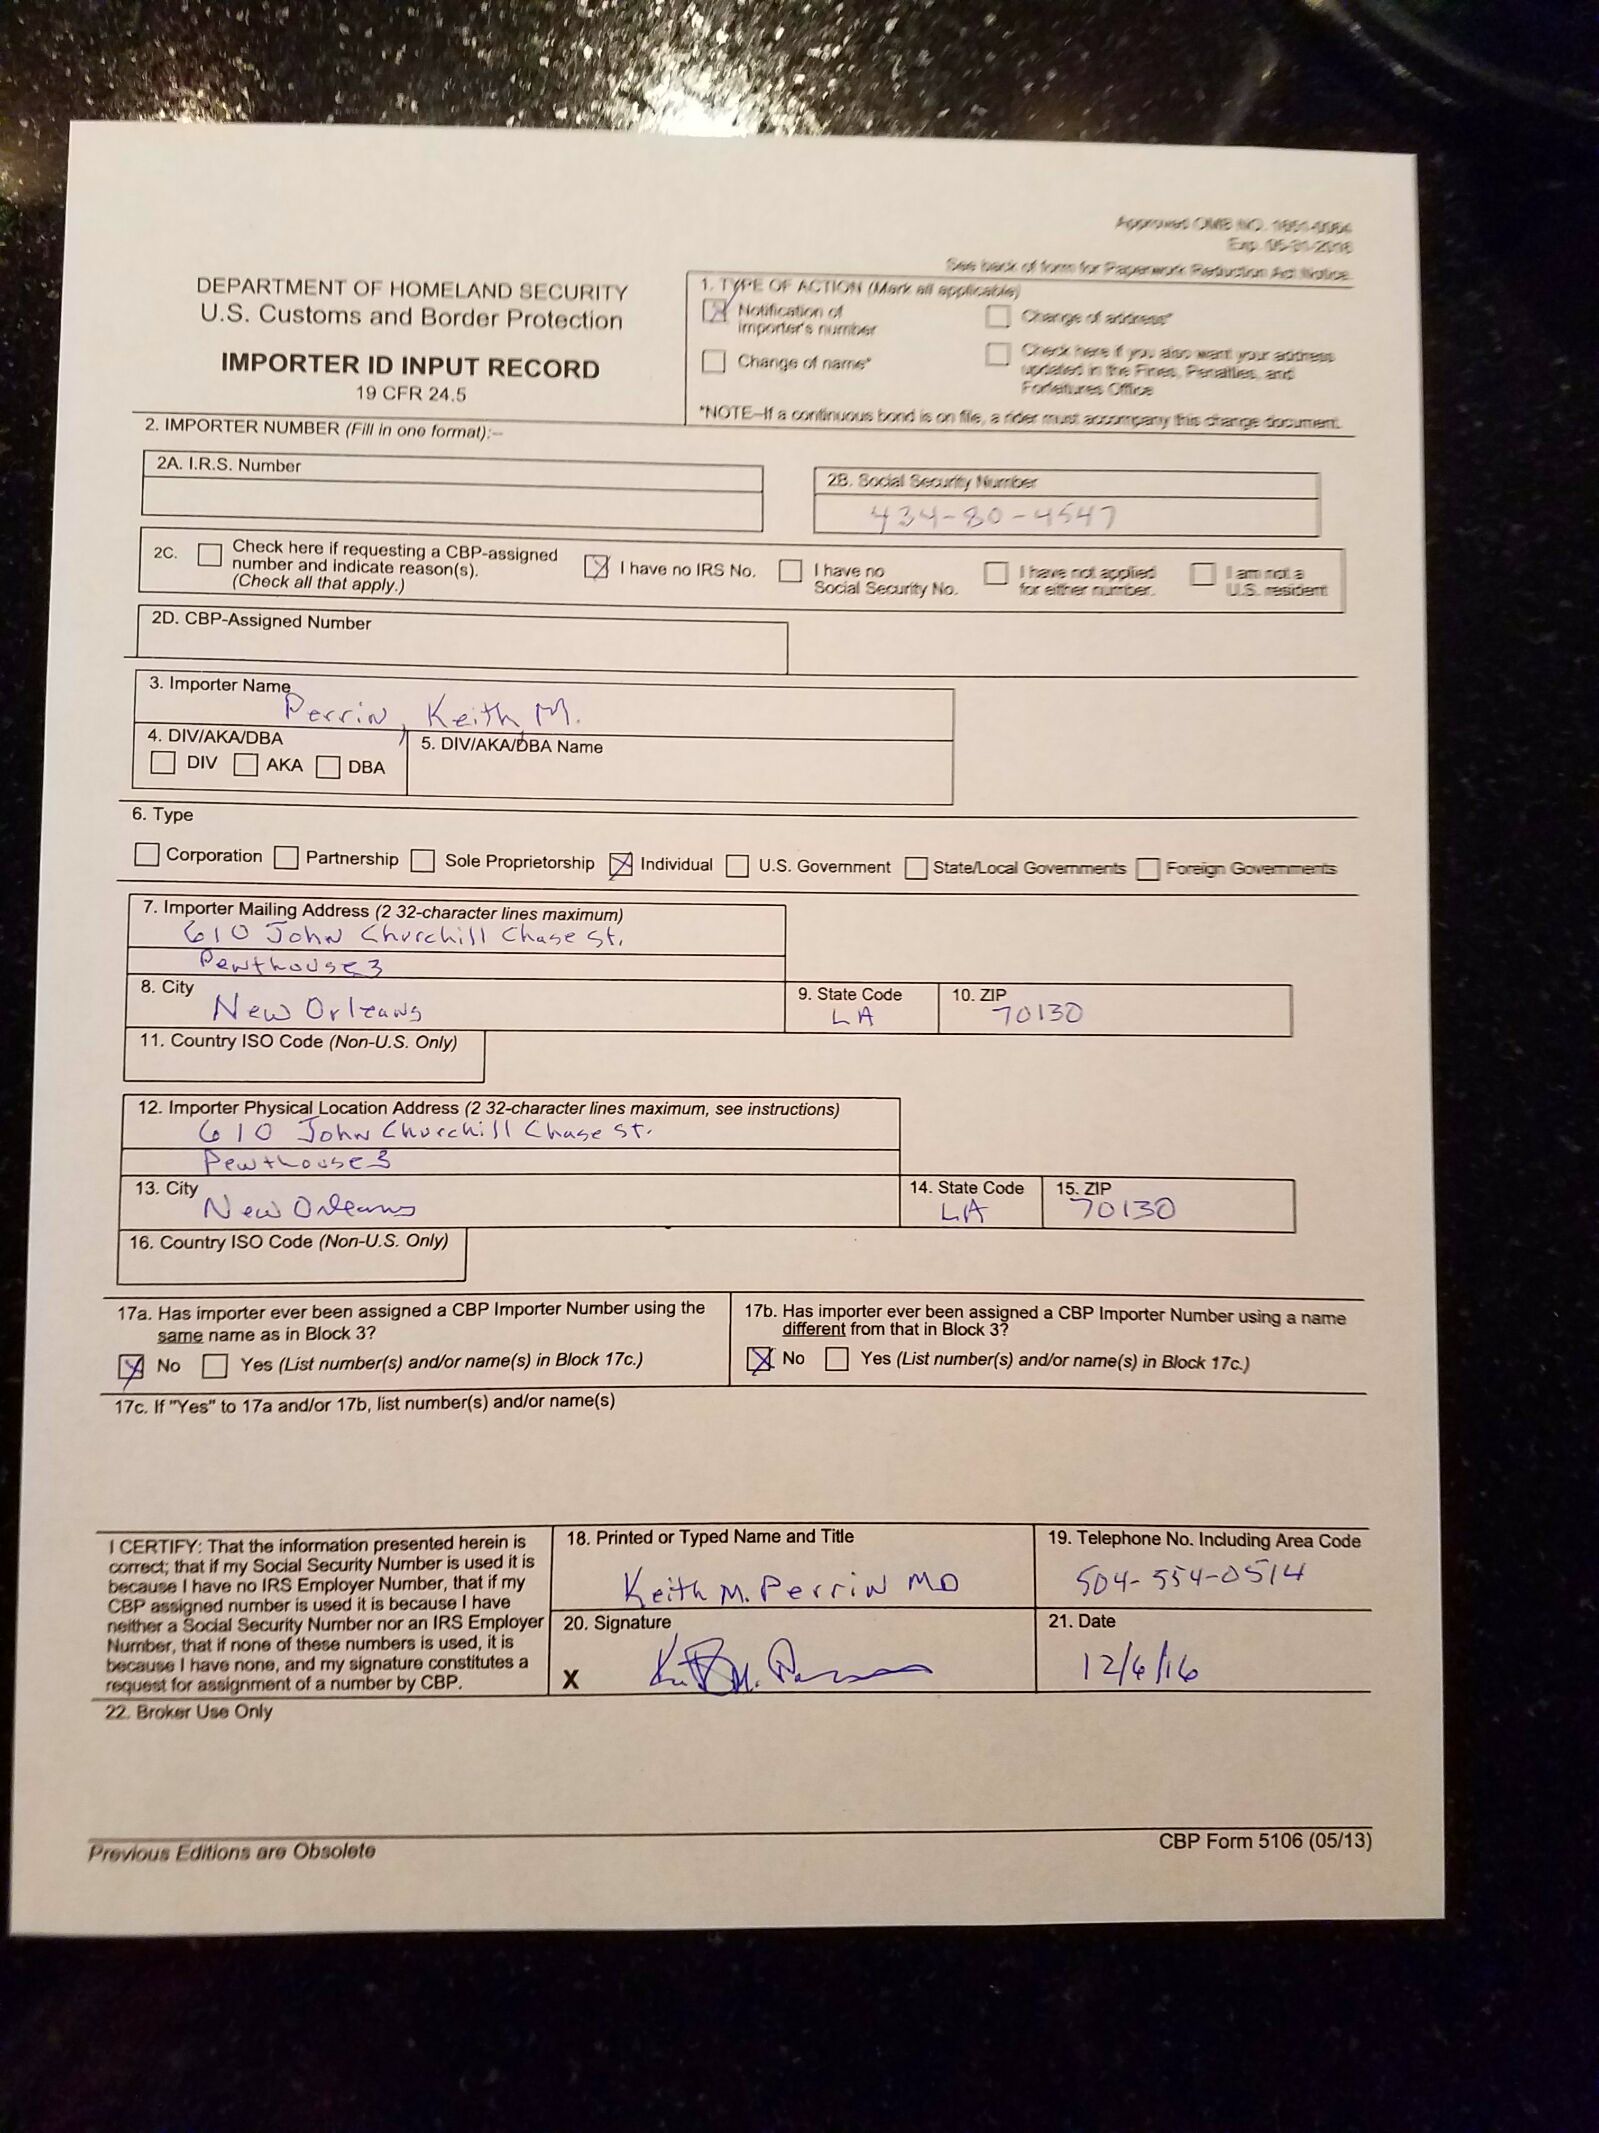 Approved OMB NO. 1651-0064
Exp. 05-31-2016
See back of form for Paperwork Reduction Act Notice.
DEPARTMENT OF HOMELAND SECURITY
U.S. Customs and Border Protection
IMPORTER ID INPUT RECORD
19 CFR 24.5
1. TYPE OF ACTION (Mark all applicable)
Notification of importer's number
Change of address*
Change of name*
Check here if you also want your address
updated in the Fines, Penalties, and
Forfeitures Office
*NOTE-If a continuous bond is on file, a rider must accompany this change document.
2. IMPORTER NUMBER (Fill in one format):-
2A. I.R.S. Number
2B. Social Security Number
434-80-4547
2C. Check here if requesting a CBP-assigned
number and indicate reason(s).
(Check all that apply.)
I have no IRS No.
I have no
Social Security No.
I have not applied
for either number.
I am not a
U.S. resident
2D. CBP-Assigned Number
3. Importer Name
Perrin, Keith M.
4. DIV/AKA/DBA
DIV AKA DBA
5. DIV/AKA/DBA Name
6. Type
Corporation Partnership Sole Proprietorship Individual U.S. Government State/Local Governments Foreign Governments
7. Importer Mailing Address (2 32-character lines maximum)
610 John Churchill Chase St.
Penthouse 3
8. City
New Orleans
9. State Code
LA
10. ZIP
70130
11. Country ISO Code (Non-U.S. Only)
12. Importer Physical Location Address (2 32-character lines maximum, see instructions)
610 John Churchill Chase St.
Penthouse 3
13. City
New Orleans
14. State Code
LA
15. ZIP
70130
16. Country ISO Code (Non-U.S. Only)
17a. Has importer ever been assigned a CBP Importer Number using the
same name as in Block 3?
No Yes (List number(s) and/or name(s) in Block 17c.)
17b. Has importer ever been assigned a CBP Importer Number using a name
different from that in Block 3?
No Yes (List number(s) and/or name(s) in Block 17c.)
17c. If "Yes" to 17a and/or 17b, list number(s) and/or name(s)
I CERTIFY: That the information presented herein is
correct; that if my Social Security Number is used it is
because I have no IRS Employer Number, that if my
CBP assigned number is used it is because I have
neither a Social Security Number nor an IRS Employer
Number, that if none of these numbers is used, it is
because I have none, and my signature constitutes a
request for assignment of a number by CBP.
18. Printed or Typed Name and Title
Keith M. Perrin MD
19. Telephone No. Including Area Code
504-554-0514
20. Signature
X
21. Date
12/6/16
22. Broker Use Only
Previous Editions are Obsolete
CBP Form 5106 (05/13)